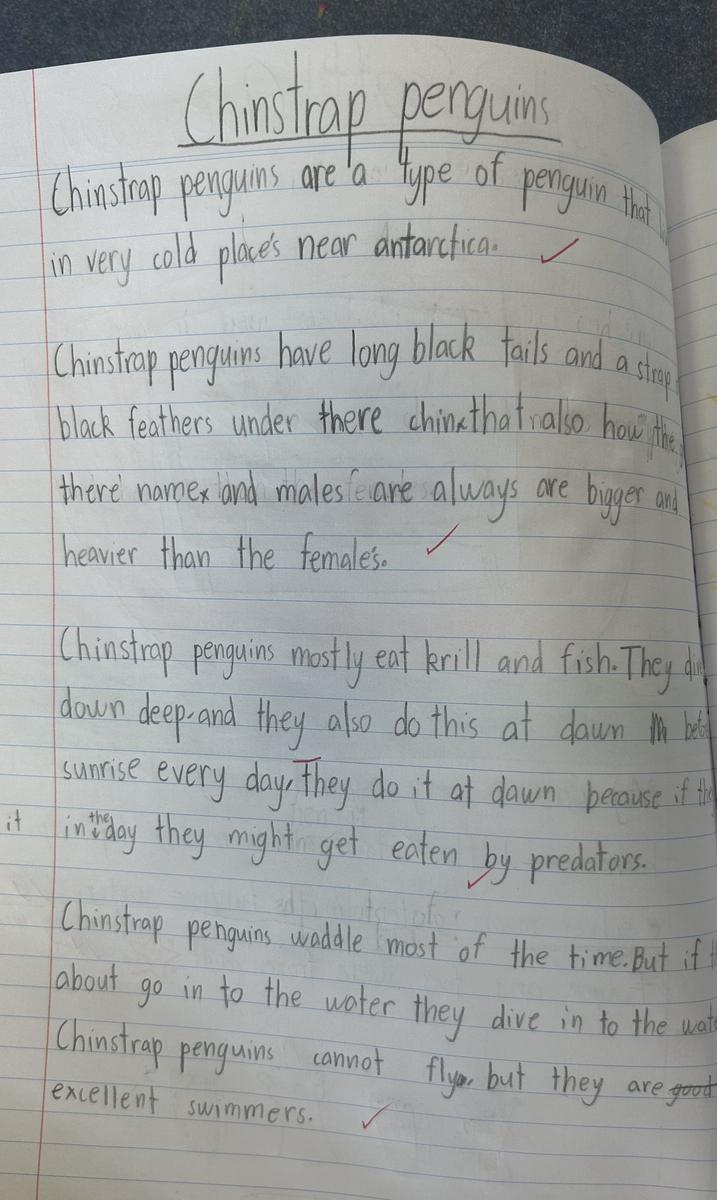 Chinstrap penguins
Chinstrap penguins are a type of penguin that
in very cold place's near antarctica.
Chinstrap penguins have long black tails and a strap
black feathers under there chin that also how the
there name and males are always are bigger and
heavier than the female's.
Chinstrap penguins mostly eat krill and fish. They
down deep and they also do this at dawn
sunrise every day, They do it at dawn because if
it in the day they might get eaten by predators.
Chinstrap penguins waddle most of the time. But if
about go in to the water they dive in to the
Chinstrap penguins cannot fly, but they are good
excellent swimmers.